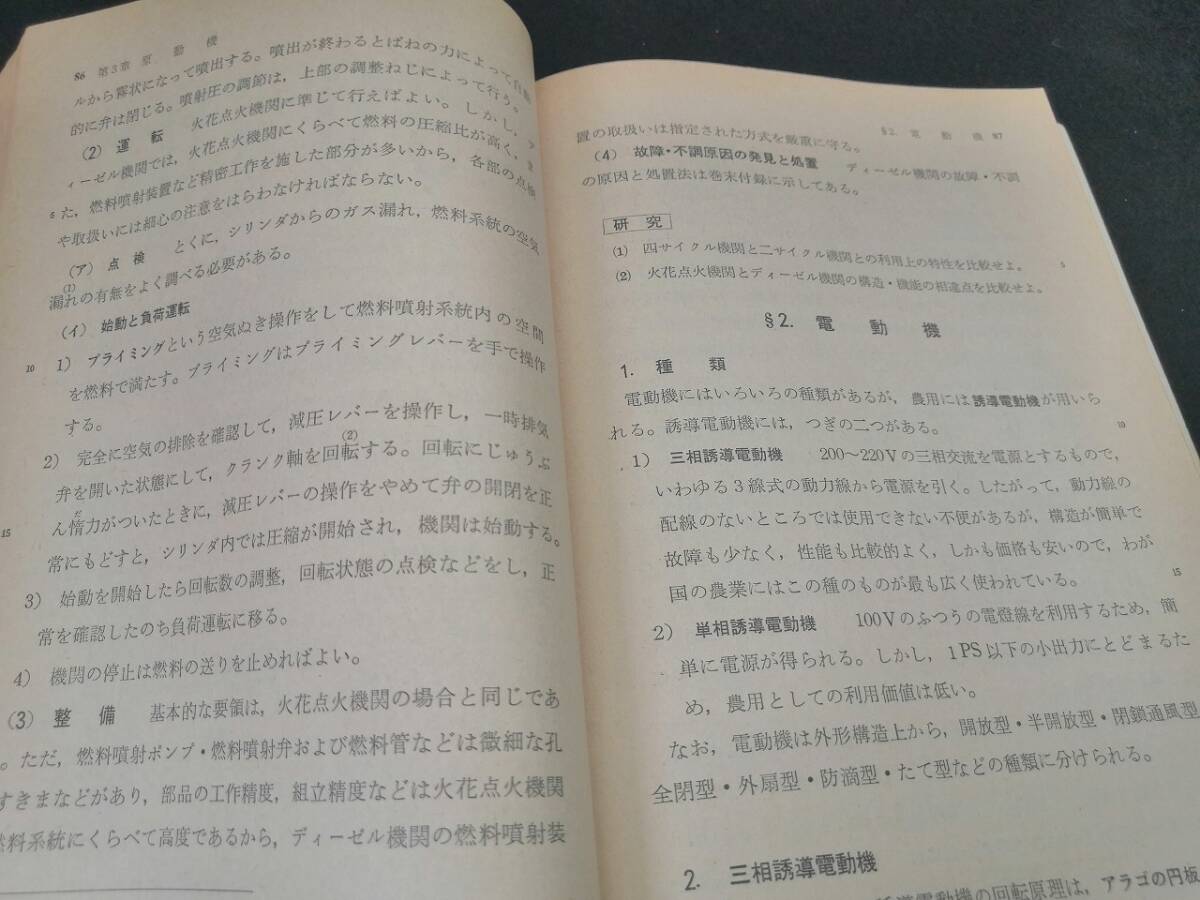 86 第3章 原動機
ルから霧状になって噴出する。噴出が終わるとばねの力によって自動
的に弁は閉じる。噴射圧の調節は，上部の調整ねじによって行う。
(2) 運転 火花点火機関に準じて行えばよい。しかし，デ
ィーゼル機関では，火花点火機関にくらべて燃料の圧縮比が高く，ま
5
た，燃料噴射装置など精密工作を施した部分が多いから，各部の点検
や取扱いには細心の注意をはらわなければならない。
(ア) 点検 とくに，シリンダからのガス漏れ，燃料系統の空気
(1)
漏れの有無をよく調べる必要がある。
(イ) 始動と負荷運転
10
1) プライミングという空気ぬき操作をして燃料噴射系統内の空間
を燃料で満たす。プライミングはプライミングレバーを手で操作
する。
2) 完全に空気の排除を確認して，減圧レバーを操作し，一時排気
(2)
弁を開いた状態にして，クランク軸を回転する。回転にじゅうぶ
だ
ん惰力がついたときに，減圧レバーの操作をやめて弁の開閉を正
15
常にもどすと，シリンダ内では圧縮が開始され，機関は始動する。
3) 始動を開始したら回転数の調整，回転状態の点検などをし，正
常を確認したのち負荷運転に移る。
4) 機関の停止は燃料の送りを止めればよい。
(3) 整備 基本的な要領は，火花点火機関の場合と同じであ
。ただ，燃料噴射ポンプ・燃料噴射弁および燃料管などは微細な孔
すきまなどがあり，部品の工作精度，組立精度などは火花点火機関
燃料系統にくらべて高度であるから，ディーゼル機関の燃料噴射装
§2. 電動機 87
置の取扱いは指定された方式を厳重に守る。
(4) 故障・不調原因の発見と処置 ディーゼル機関の故障・不調
の原因と処置法は巻末付録に示してある。
研究
(1) 四サイクル機関と二サイクル機関との利用上の特性を比較せよ。
5
(2) 火花点火機関とディーゼル機関の構造・機能の相違点を比較せよ。
§2. 電動機
1. 種類
電動機にはいろいろの種類があるが，農用には誘導電動機が用いら
れる。誘導電動機には，つぎの二つがある。
10
1) 三相誘導電動機 200〜220Vの三相交流を電源とするもので，
いわゆる3線式の動力線から電源を引く。したがって，動力線の
配線のないところでは使用できない不便があるが，構造が簡単で
故障も少なく，性能も比較的よく，しかも価格も安いので，わが
国の農業にはこの種のものが最も広く使われている。
15
2) 単相誘導電動機 100Vのふつうの電燈線を利用するため，簡
単に電源が得られる。しかし，1PS以下の小出力にとどまるた
め，農用としての利用価値は低い。
なお，電動機は外形構造上から，開放型・半開放型・閉鎖通風型
全閉型・外扇型・防滴型・たて型などの種類に分けられる。
2. 三相誘導電動機
誘導電動機の回転原理は，アラゴの円板